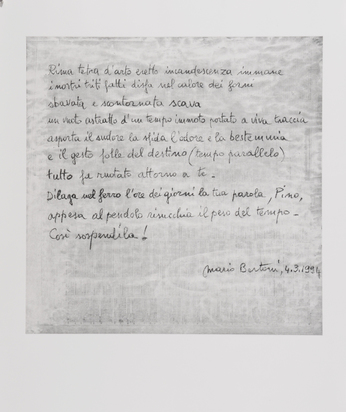 Rima tesa d'arto eretto incandescenza immane
i nostri triti fatti disfa nel calore dei forni
sbavata e scontornata scava
un vuoto astratto d'un tempo immoto portato a viva traccia
asporta il sudore la sfida l'odore e la bestemmia
e il gesto folle del destino (tempo parallelo)
tutto fa ruotato attorno a te.
Dilaga nel ferro l'ore dei giorni la tua parola, Pino,
appesa al pendolo rinicchia il peso del tempo.
Così sospendila!
Mario Bertoni, 4.3.1994